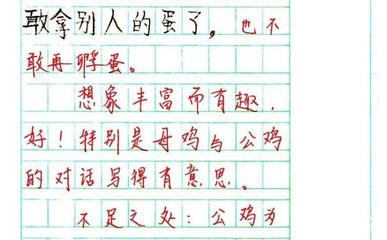 敢拿别人的蛋了，也不
敢再孵蛋。
想象丰富而有趣，
好！特别是母鸡与公鸡
的对话写得有意思。
不足之处：公鸡为